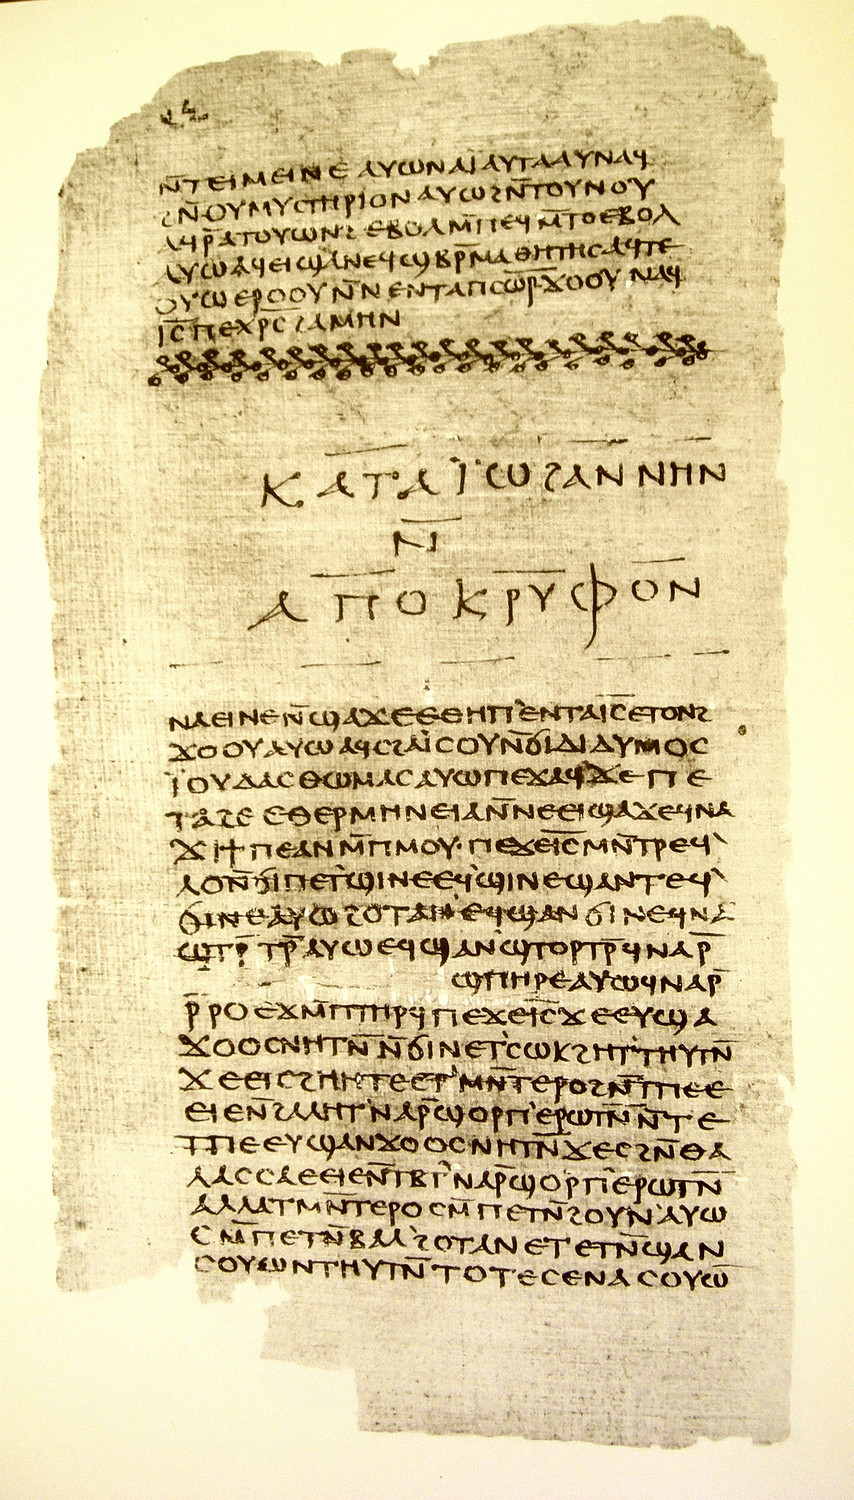 ⲛ̄ⲧⲉⲓⲙⲉⲓⲛⲉ ⲁⲩⲱ ⲛⲁⲓ̈ ⲁⲩⲧⲁⲁⲩ ⲛⲁϥ
ϩⲛ̄ ⲟⲩⲙⲩⲥⲧⲏⲣⲓⲟⲛ ⲁⲩⲱ ϩⲛ̄ ⲧⲟⲩⲛⲟⲩ
ⲁϥⲣ̄ⲁⲧⲟⲩⲱⲛϩ ⲉⲃⲟⲗ ⲙ̄ⲡⲉϥⲙ̄ⲧⲟ ⲉⲃⲟⲗ
ⲁⲩⲱ ⲁϥⲉⲓ ϣⲁ ⲛⲉϥϣⲃⲣ̄ⲙⲁⲑⲏⲧⲏⲥ ⲁϥⲧⲉ
ⲟⲩⲱ ⲉⲣⲟⲟⲩ ⲛ̄ⲛⲉⲛⲧⲁ ⲡⲥⲱ̄ⲣ̄ ϫⲟⲟⲩ ⲛⲁϥ
ⲓ̄ⲥ̄ ⲡⲉⲭ̄ⲣ̄ⲥ̄ ϩⲁⲙⲏⲛ
ⲕⲁⲧⲁ ⲓ̈ⲱϩⲁⲛⲛⲏⲛ
ⲛ̄
ⲁⲡⲟⲕⲣⲩⲫⲟⲛ
ⲛⲁⲉⲓ ⲛⲉ ⲛ̄ϣⲁϫⲉ ⲉⲑⲏⲡ ⲉⲛⲧⲁ ⲓ̄ⲥ̄ ⲉⲧⲟⲛϩ
ϫⲟⲟⲩ ⲁⲩⲱ ⲁϥⲥϩⲁⲓ̈ⲥⲟⲩ ⲛ̄ϭⲓ ⲇⲓⲇⲩⲙⲟⲥ
ⲓ̈ⲟⲩⲇⲁⲥ ⲑⲱⲙⲁⲥ ⲁⲩⲱ ⲡⲉϫⲁϥ ϫⲉ ⲡⲉ
ⲧⲁϩⲉ ⲉⲑⲉⲣⲙⲏⲛⲉⲓⲁ ⲛ̄ⲛⲉⲉⲓϣⲁϫⲉ ϥⲛⲁ
ϫⲓ ϯⲡⲉ ⲁⲛ ⲙ̄ⲡⲙⲟⲩ· ⲡⲉϫⲉ ⲓ̄ⲥ̄ ⲙⲛ̄ⲧⲣⲉϥ
ⲗⲟ ⲛ̄ϭⲓ ⲡⲉⲧϣⲓⲛⲉ ⲉϥϣⲓⲛⲉ ϣⲁⲛⲧⲉϥ
ϭⲓⲛⲉ ⲁⲩⲱ ϩⲟⲧⲁⲛ ⲉϥϣⲁⲛϭⲓⲛⲉ ϥⲛⲁ
ϣⲧⲣ̄ⲧⲣ̄ ⲁⲩⲱ ⲉϥϣⲁⲛϣⲧⲟⲣⲧⲣ̄ ϥⲛⲁⲣ̄
ϣⲡⲏⲣⲉ ⲁⲩⲱ ϥⲛⲁⲣ̄
ⲣ̄ⲣⲟ ⲉϫⲙ̄ ⲡⲧⲏⲣϥ ⲡⲉϫⲉ ⲓ̄ⲥ̄ ϫⲉ ⲉⲩϣⲁ
ϫⲟⲟⲥ ⲛⲏⲧⲛ̄ ⲛ̄ϭⲓ ⲛⲉⲧⲥⲱⲕ ϩⲏⲧ ⲧⲏⲩⲧⲛ̄
ϫⲉ ⲉⲓⲥϩⲏⲏⲧⲉ ⲉⲧⲙⲛ̄ⲧⲉⲣⲟ ϩⲛ̄ ⲧⲡⲉ ⲉ
ⲉⲓⲉ ⲛ̄ϩⲁⲗⲏⲧ ⲛⲁⲣ̄ϣⲟⲣⲡ ⲉⲣⲱⲧⲛ̄ ⲛ̄ⲧⲉ
ⲧⲡⲉ ⲉⲩϣⲁⲛϫⲟⲟⲥ ⲛⲏⲧⲛ̄ ϫⲉ ⲥϩⲛ̄ ⲑⲁ
ⲗⲁⲥⲥⲁ ⲉⲉⲓⲉ ⲛ̄ⲧⲃⲧ ⲛⲁⲣ̄ϣⲟⲣⲡ ⲉⲣⲱⲧⲛ̄
ⲁⲗⲗⲁ ⲧⲙⲛ̄ⲧⲉⲣⲟ ⲥⲙ̄ⲡⲉⲧⲛ̄ϩⲟⲩⲛ ⲁⲩⲱ
ⲥⲙ̄ⲡⲉⲧⲛ̄ⲃⲁⲗ ϩⲟⲧⲁⲛ ⲉⲧⲉⲧⲛ̄ϣⲁⲛ
ⲥⲟⲩⲱⲛ ⲧⲏⲩⲧⲛ̄ ⲧⲟⲧⲉ ⲥⲉⲛⲁⲥⲟⲩⲱ